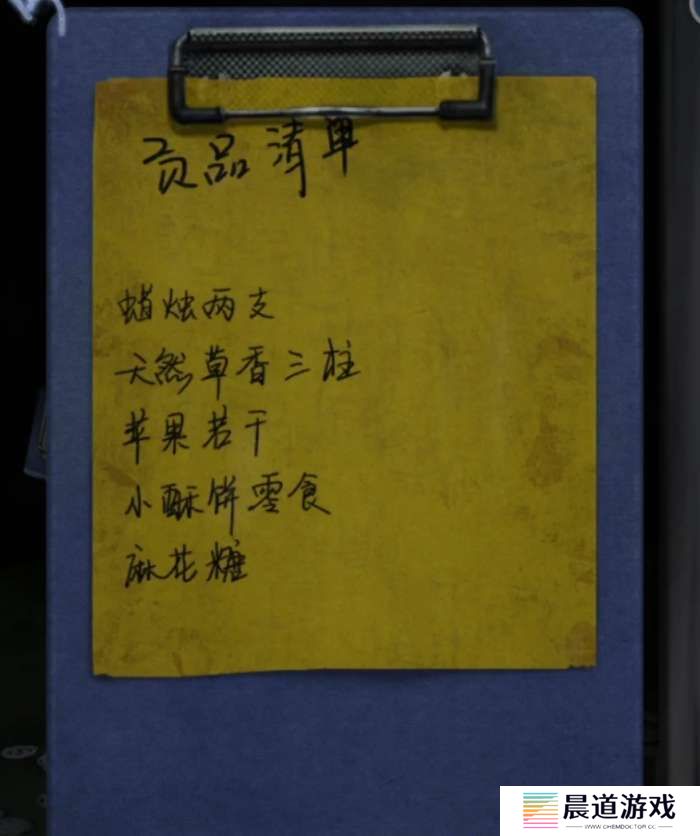 贡品清单
蜡烛两支
天然草香三柱
苹果若干
小酥饼零食
麻花糖
晨道游戏
WWW.CHEMDOKTOR.COM